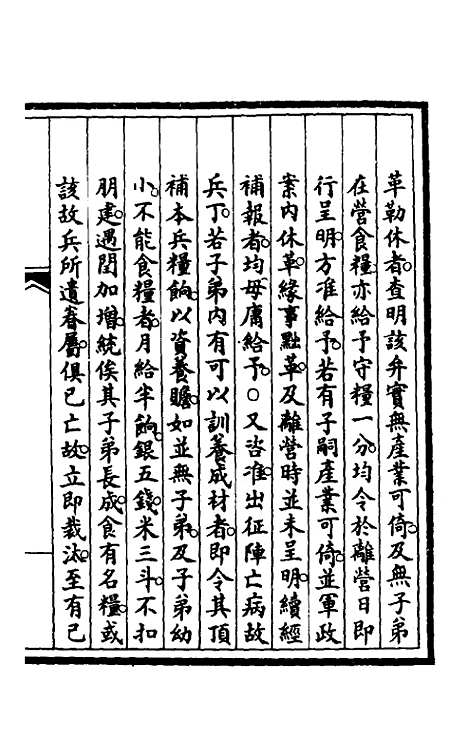 革勒休者。查明該弁實無產業可倚。及無子弟
在營食糧。亦給予守糧一分。均令於離營日即
行呈明。方准給予。若有子嗣產業可倚。並軍政
案內休革。緣事黜革。及離營時並未呈明。續經
補報者。均毋庸給予。○又咨准。出征陣亡病故
兵丁。若子弟內有可以訓養成材者。即令其頂
補本兵糧餉。以資養贍。如並無子弟。及子弟幼
小。不能食糧者。月給半餉銀五錢。米三斗。不扣
朋建。遇閏加增。統俟其子弟長成。食有名糧。或
該故兵所遺眷屬。俱已亡故。立即裁汰。至有已